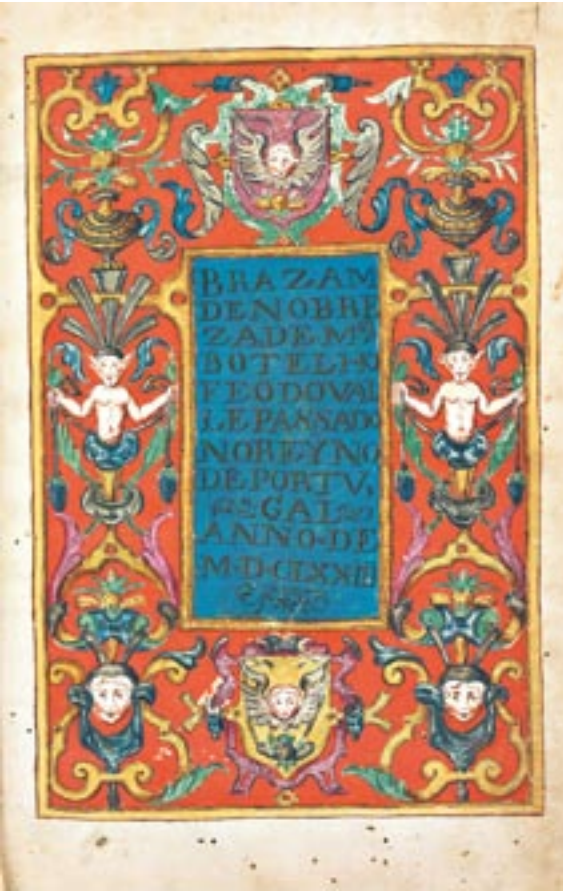 BRAZAM
DENOBRE
ZADEMel
BOTELHO
FEODOVAL
LEPASSADO
NOREYNO
DEPORTV,
GAL
ANNO·DE
M·D·CLXXIII